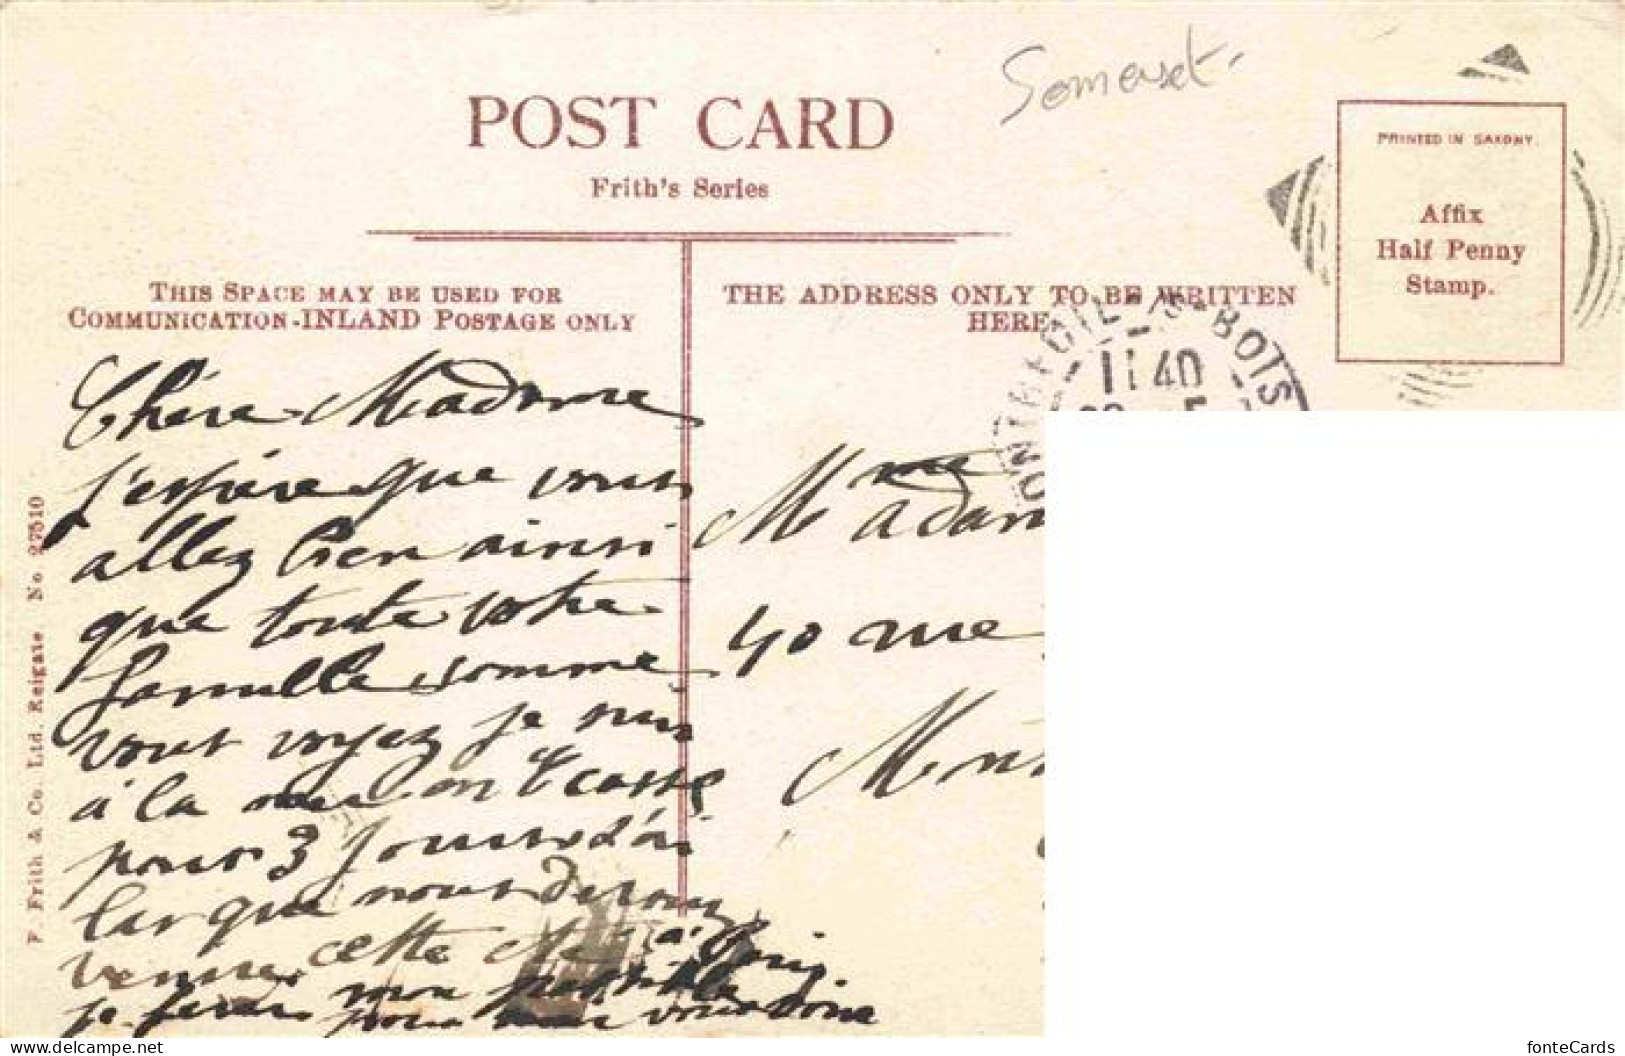 Somerset.
POST CARD
Frith's Series
PRINTED IN SAXONY.
Affix
Half Penny
Stamp.
THIS SPACE MAY BE USED FOR
COMMUNICATION-INLAND POSTAGE ONLY
THE ADDRESS ONLY TO BE WRITTEN
HERE
F. Frith & Co. Ltd. Reigate No 27510
Chère Madame
j'espère que vous
allez bien ainsi
que toute votre
famille comme
vous voyez je suis
à la mer en Ecosse
pour 3 jours
que nous
cette à Paris
je ferai mon possible
pour vous voir
MONTREUIL-S-BOIS
11 40
Mme
40 rue
fonteCards
www.delcampe.net